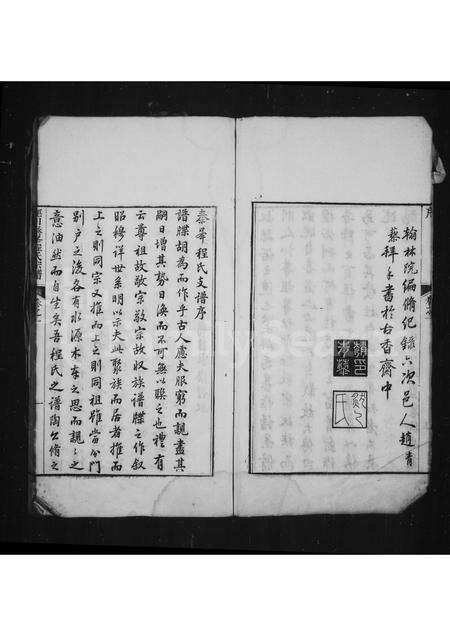 翰林院編脩紀錄六次邑人趙青
藜拜手書於古香齋中
泰華程氏支譜序
譜牒胡為而作乎古人慮夫服窮而親盡其
嗣日增其勢日渙而不可無以聯之也禮有
云尊祖故敬宗敬宗故收族譜牒之作叙
昭穆詳世系明以示夫此聚族而居者推而
上之則同宗又推而上之則同祖雖當分門
別户之後各有水源木本之思而親〻之
意油然而自生矣吾程氏之譜陶公脩之